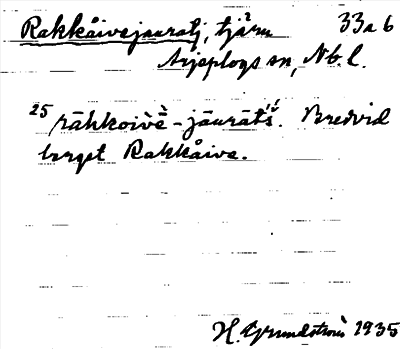 Rakkåivejauratj, tjärn 33 a b
Arjeplogs sn, Nb. l.
25 rāhkoi̊vē̆ - jāurāt́ś. Bredvid
berget Rakkåive.
H. Grundström 1935